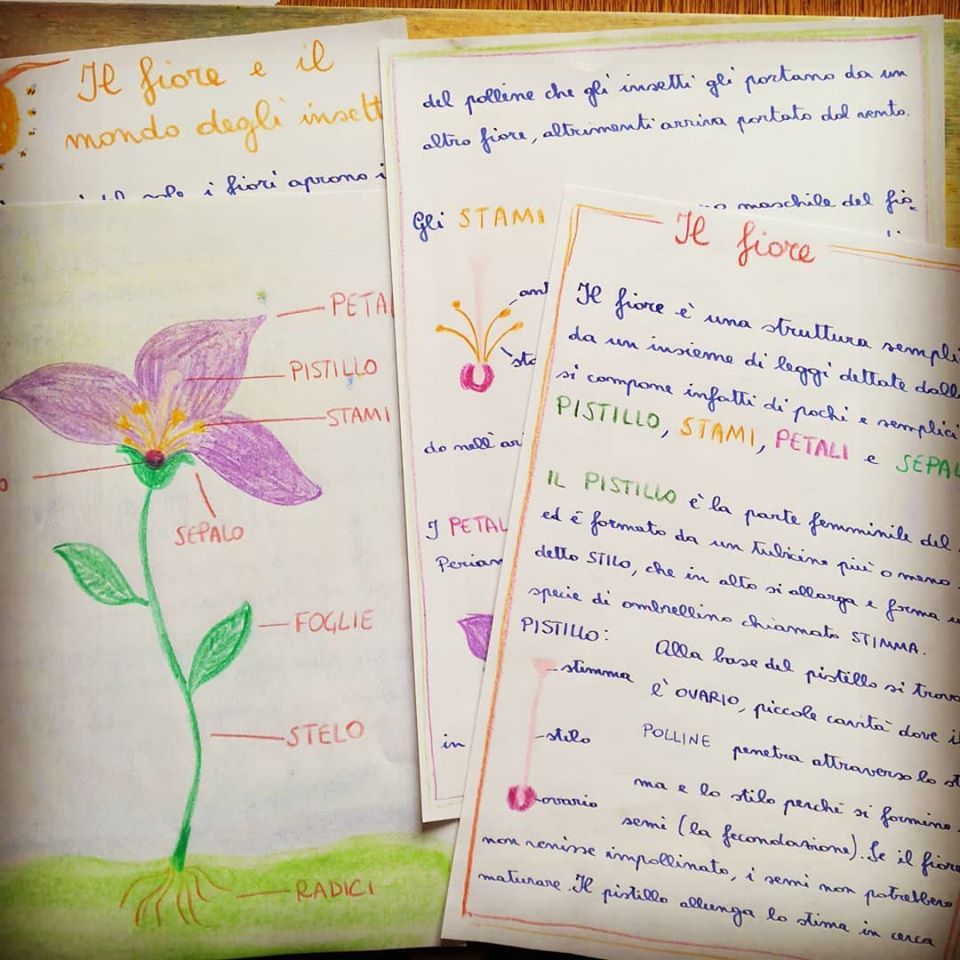 Il fiore e il
mondo degli insett
i fiori aprono i
PETA
PISTILLO
STAMI
o
SEPALO
FOGLIE
STELO
RADICI
del polline che gli insetti gli portano da un
altro fiore, altrimenti arriva portato dal vento.
Gli STAMI
no maschile del fio
ant
sta
do nell'ar
I PETAL
Perian
in
Il fiore
Il fiore è una struttura sempli
da un insieme di leggi dettate dall
si compone infatti di pochi e semplici
PISTILLO, STAMI, PETALI e SEPAL
IL PISTILLO è la parte femminile del
ed è formato da un tubicino più o meno
detto STILO, che in alto si allarga e forma u
specie di ombrellino chiamato STIMMA.
PISTILLO:
stimma
stilo
ovario
Alla base del pistillo si trova
l'OVARIO, piccole cavità dove il
POLLINE penetra attraverso lo st
ma e lo stilo perché si formino
semi (la fecondazione). Se il fiore
non venisse impollinato, i semi non potrebbero
maturare. Il pistillo allunga lo stima in cerca